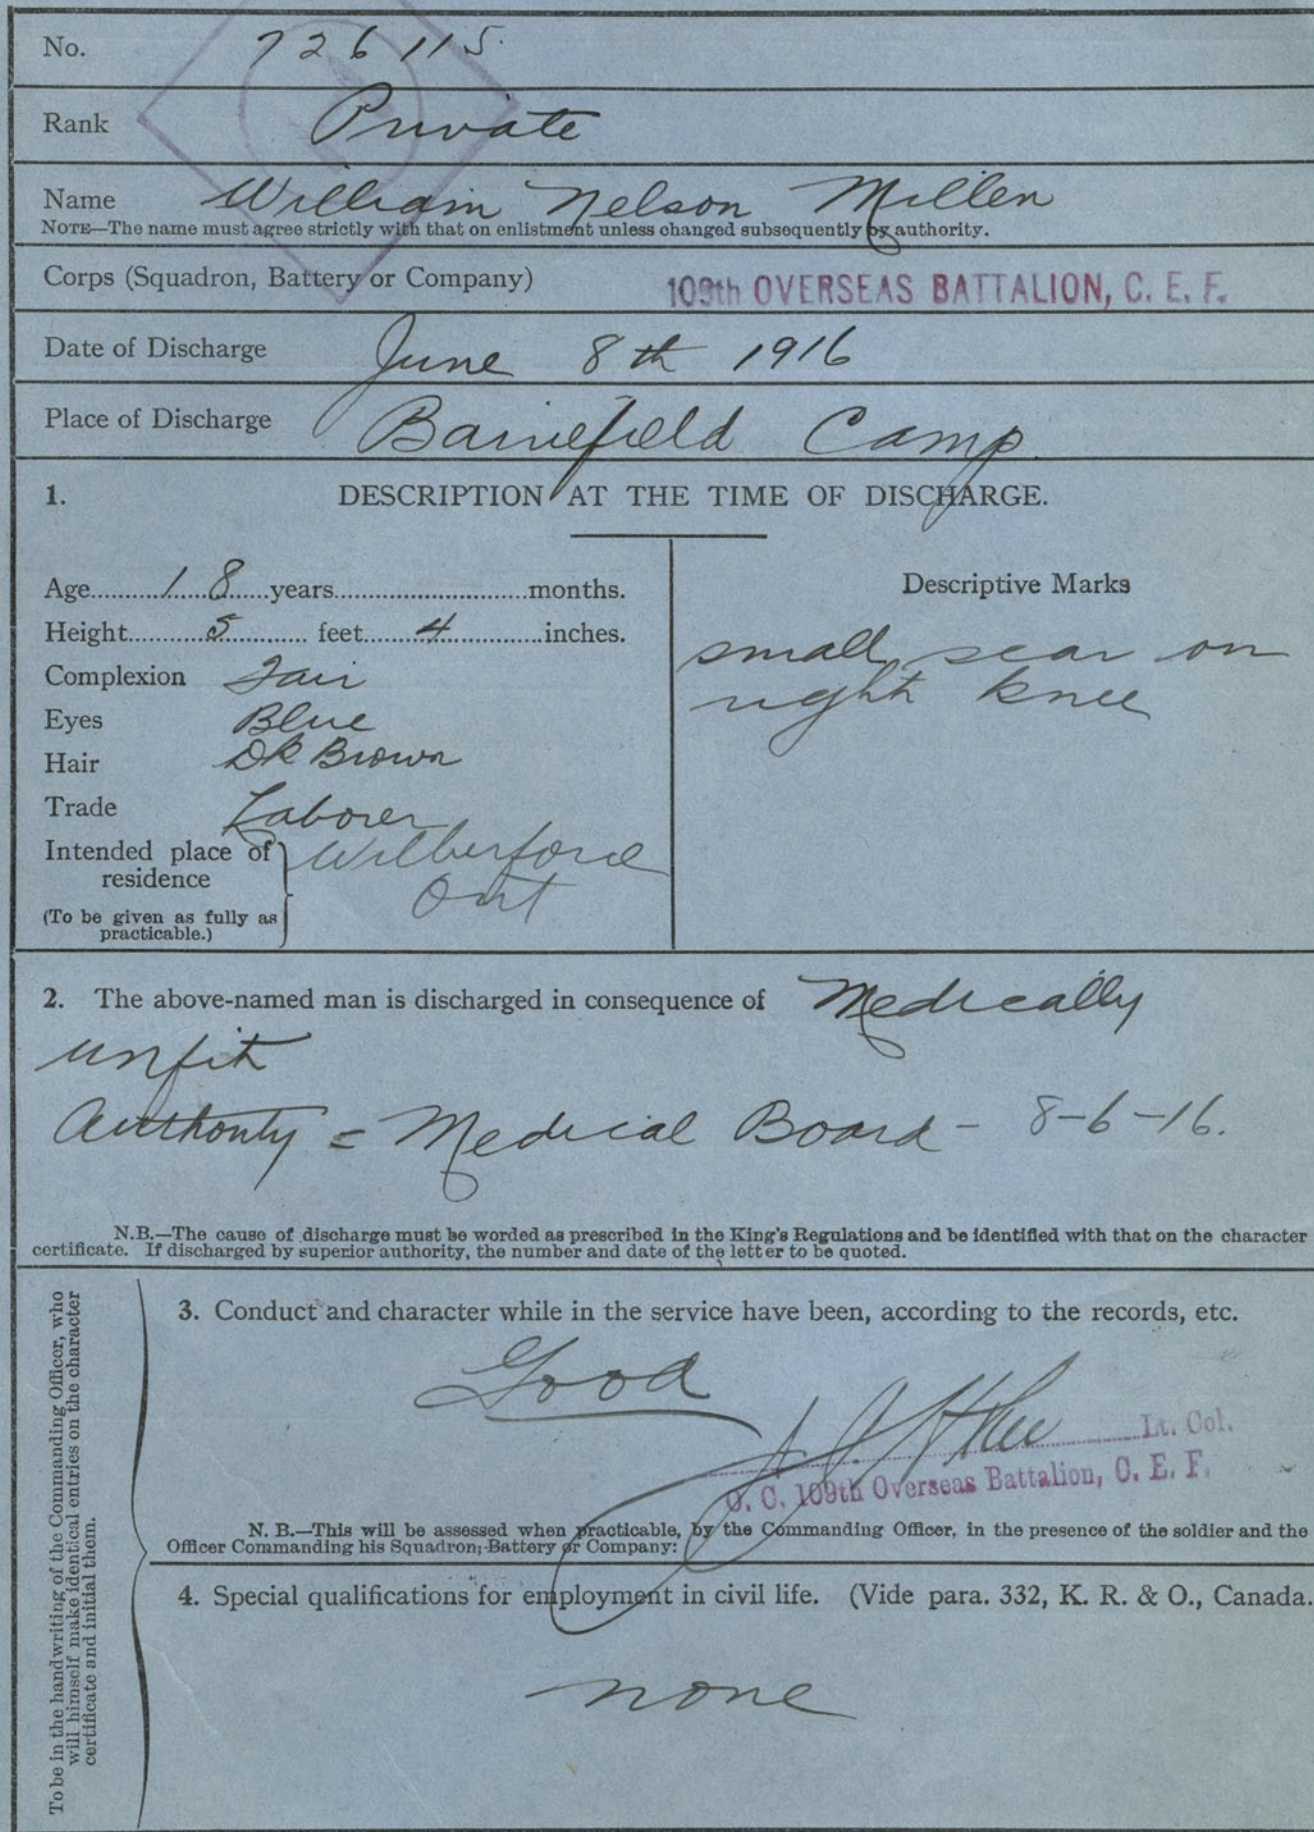 No. 726115.
Rank Private
Name William Nelson Millen
NOTE—The name must agree strictly with that on enlistment unless changed subsequently by authority.
Corps (Squadron, Battery or Company) 109th OVERSEAS BATTALION, C. E. F.
Date of Discharge June 8th 1916
Place of Discharge Barriefield Camp.
1. DESCRIPTION AT THE TIME OF DISCHARGE.
Age 18 years months.
Height 5 feet 4 inches.
Complexion Fair
Eyes Blue
Hair Dk Brown
Trade Laborer
Intended place of residence Wilberforce
Ont
(To be given as fully as
practicable.)
Descriptive Marks
small scar on
right knee
2. The above-named man is discharged in consequence of Medically
unfit
Authority = Medical Board - 8-6-16.
N.B.—The cause of discharge must be worded as prescribed in the King's Regulations and be identified with that on the character
certificate. If discharged by superior authority, the number and date of the letter to be quoted.
To be in the handwriting of the Commanding Officer, who
will himself make identical entries on the character
certificate and initial them.
3. Conduct and character while in the service have been, according to the records, etc.
Good
Lt. Col.
O. C. 109th Overseas Battalion, C. E. F.
N. B.—This will be assessed when practicable, by the Commanding Officer, in the presence of the soldier and the
Officer Commanding his Squadron; Battery or Company:
4. Special qualifications for employment in civil life. (Vide para. 332, K. R. & O., Canada.
none